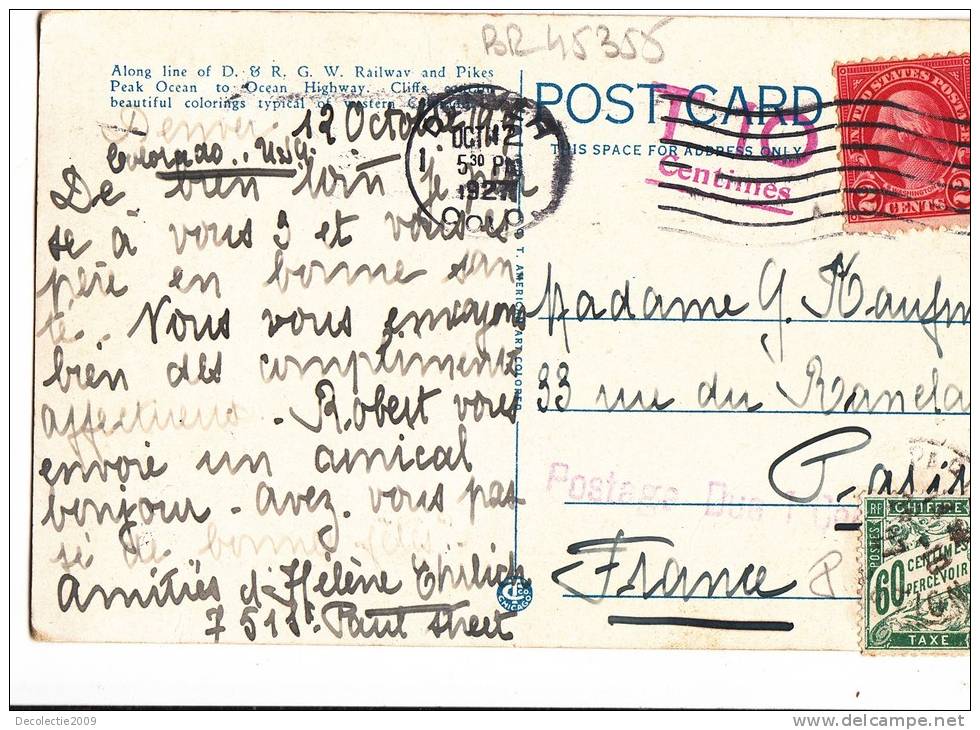 BR 45356
Along line of D. & R. G. W. Railway and Pikes
Peak Ocean to Ocean Highway. Cliffs contain
beautiful colorings typical of western
Denver 12 October
Colorado.. USA.
De bien loin je pen
se à vous 3 et vous es
père en bonne san
té.. Nous vous envoyons
bien des compliments
affectueux. Robert vous
envoie un amical
bonjour. Avez vous pas
sé de bonne fêtes
Amitiés d'Hélène Ehrlich
Street
OCT 12
5 30 PM
1927
COLO
POST CARD
THIS SPACE FOR ADDRESS ONLY
T 10
Centimes
UNITED STATES POSTAGE
WASHINGTON
2 CENTS 2
Madame G. Kaufm
33 rue du Ranela
Paris
Postage Due 1
France
C. T. AMERICAN ART COLORED
CHICAGO
RF CHIFFRE
POSTES
60 CENTIMES
A PERCEVOIR
TAXE
Decolectie2009
www.delcampe.net